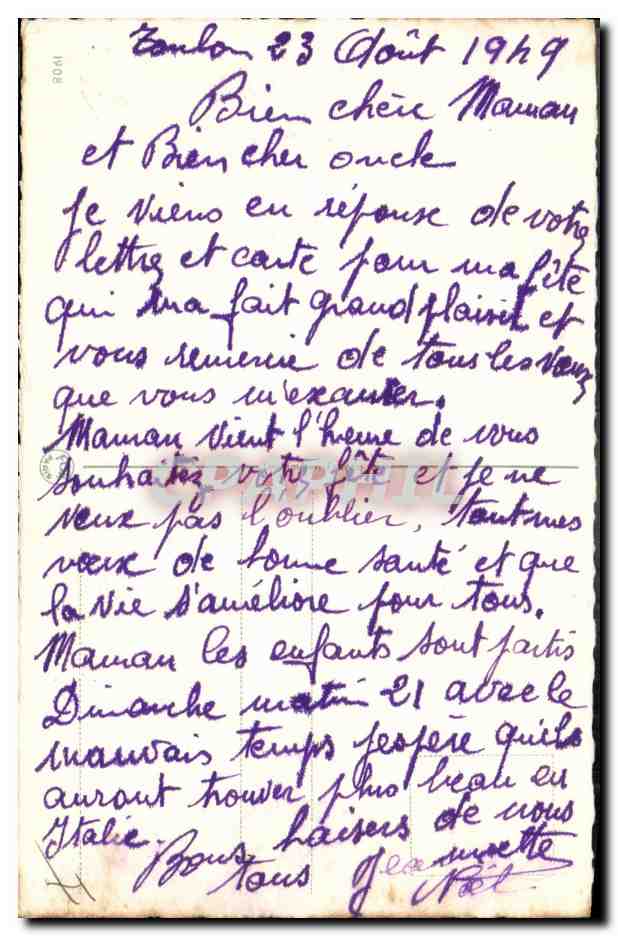 Toulon 23 Août 1949
1908
Bien chère Maman
et Bien cher oncle
Je viens en réponse de votre
lettre et carte pour ma fête
qui ma fait grand plaisir et
vous remercie de tous les vœux
que vous m'exaucer.
Maman vient l'heure de vous
souhaitez votre fête et je ne
veux pas l'oublier, tout mes
vœux de bonne santé et que
la vie s'améliore pour tous.
Maman les enfants sont partis
Dimanche matin 21 avec le
mauvais temps j'espère qu'ils
auront trouver plus beau en
Italie.
Bons baisers de nous
tous Jeannette
CPAPHIL